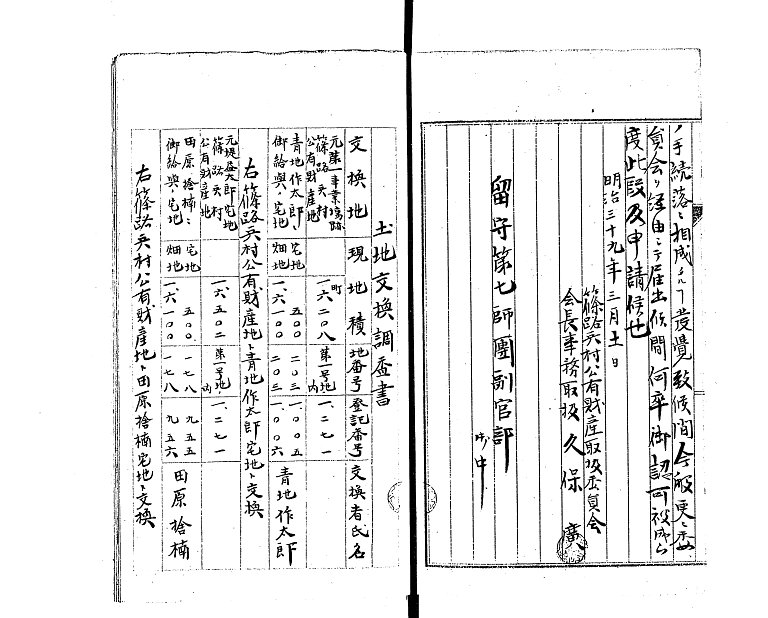 ノ手続落ニ相成候ヿ発覚致候間今般更ニ委
員会ヲ経由シテ届出候間何卒御認可被成下
度此段及申請候也
明治三十九年三月十一日
篠路兵村公有財産取扱委員会
会長事務取扱 久保 廣
留守第七師團副官部
御中
土地交換調査書
交換地 現地積 地番号 登記番号 交換者氏名
元第一事業場跡 篠路兵村公有財産地 町一六二〇八 第一号地ノ内 一、二七一
青地作太郎ニ御給與ノ宅地 宅地 五〇〇 二〇三 一、〇〇五 青地作太郎
畑地 一、六一〇〇 二〇三 一、〇〇六
右篠路兵村公有財産地ト青地作太郎宅地ト交換
元堤益太郎宅地 篠路兵村公有財産地 一、六五〇二 第一号地ノ内 一、二七一
田原捨楠ニ御給與ノ宅地 宅地 五〇〇 一七八 九五五 田原捨楠
畑地 一、六一〇〇 一七八 九五六
右篠路兵村公有財産地ト田原捨楠宅地ト交換